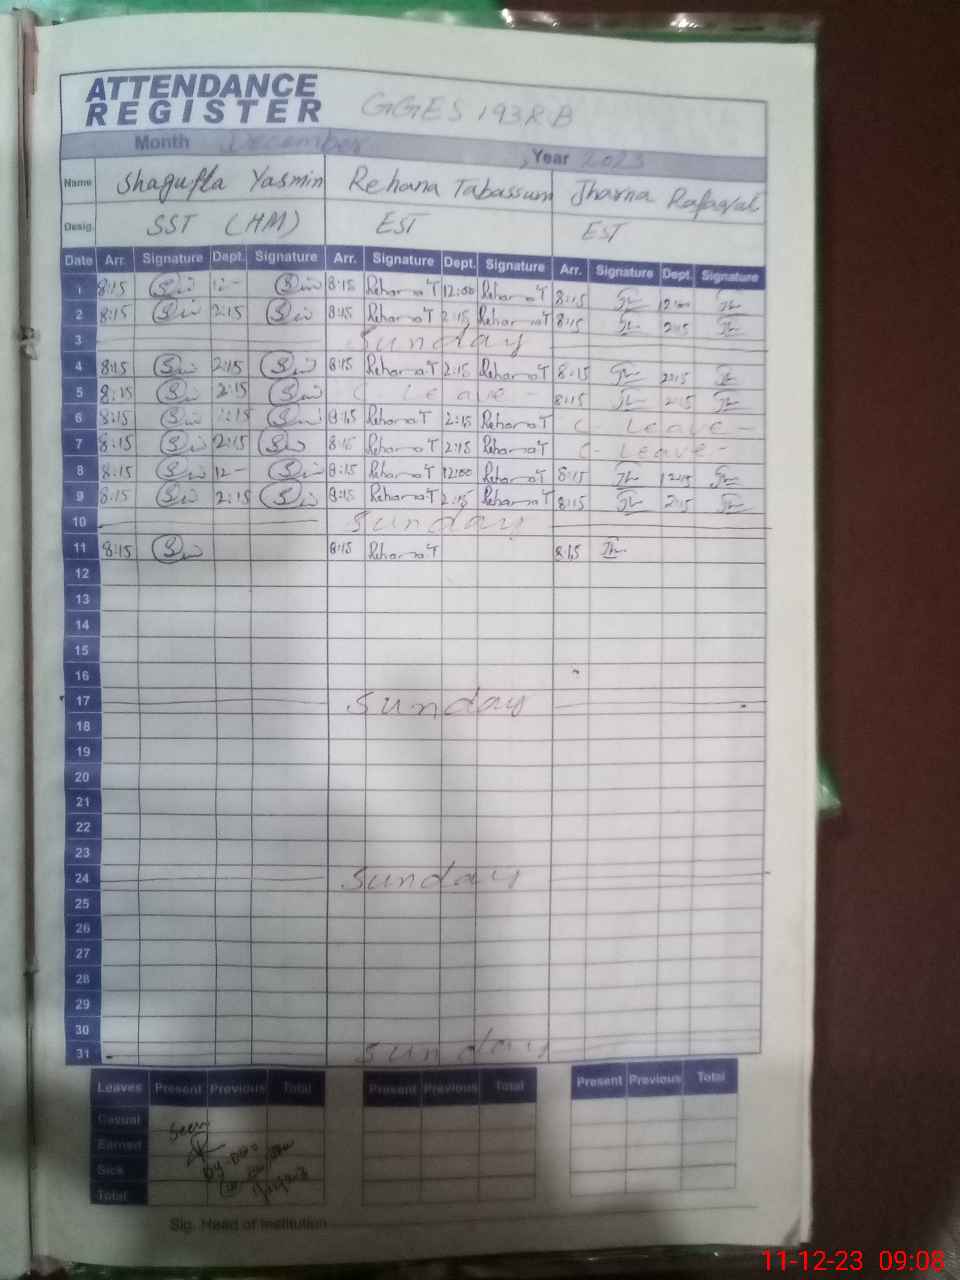 ATTENDANCE
REGISTER GGES 193RB
Month December Year 2023
Name Shagufta Yasmin Rehana Tabassum Jharna Rafaqat
Desig. SST (HM) EST EST
Date Arr. Signature Dept. Signature Arr. Signature Dept. Signature Arr. Signature Dept. Signature
1 8:15 12- 8:15 Rehana T 12:00 Rehana T 8:15 12:00
2 8:15 2:15 8:15 Rehana T 2:15 Rehana T 8:15 2:15
3 Sunday
4 8:15 2:15 8:15 Rehana T 2:15 Rehana T 8:15 2:15
5 8:15 2:15 C. Leave - 8:15 2:15
6 8:15 2:15 8:15 Rehana T 2:15 Rehana T C. Leave -
7 8:15 2:15 8:15 Rehana T 2:15 Rehana T C. Leave -
8 8:15 12- 8:15 Rehana T 12:00 Rehana T 8:15
9 8:15 2:15 8:15 Rehana T 2:15 Rehana T 8:15 2:15
10 Sunday
11 8:15 8:15 Rehana T 8:15
12
13
14
15
16
17 Sunday
18
19
20
21
22
23
24 Sunday
25
26
27
28
29
30
31 Sunday
Leaves Present Previous Total Present Previous Total Present Previous Total
Casual
Earned
Sick
Total
Seen
Sig. Head of Institution
11-12-23 09:08